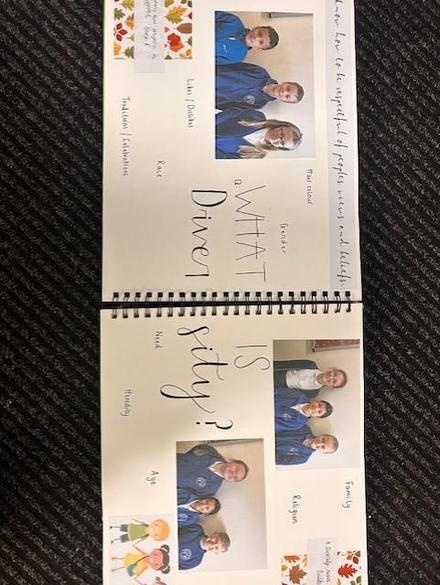 know how to be respectful of peoples views and beliefs.
Family
Hair colour
Gender
Religion
WHAT IS
Diversity?
Likes / Dislikes
Race
Need
Age
Traditions / Celebrations
Heredity